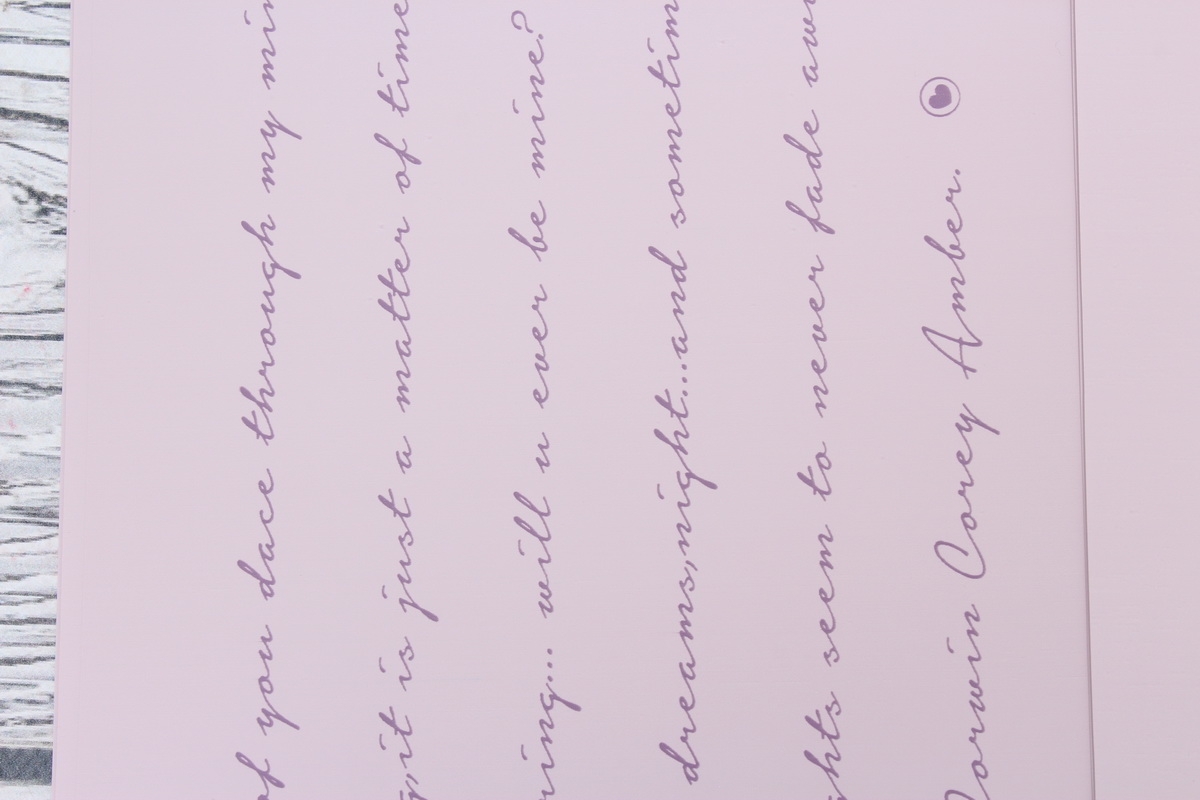 of you dace through my min
,it is just a matter of time
ring... will u ever be mine?
dreams,night...and sometim
ghts seem to never fade aw
Corwin Corey Amber.